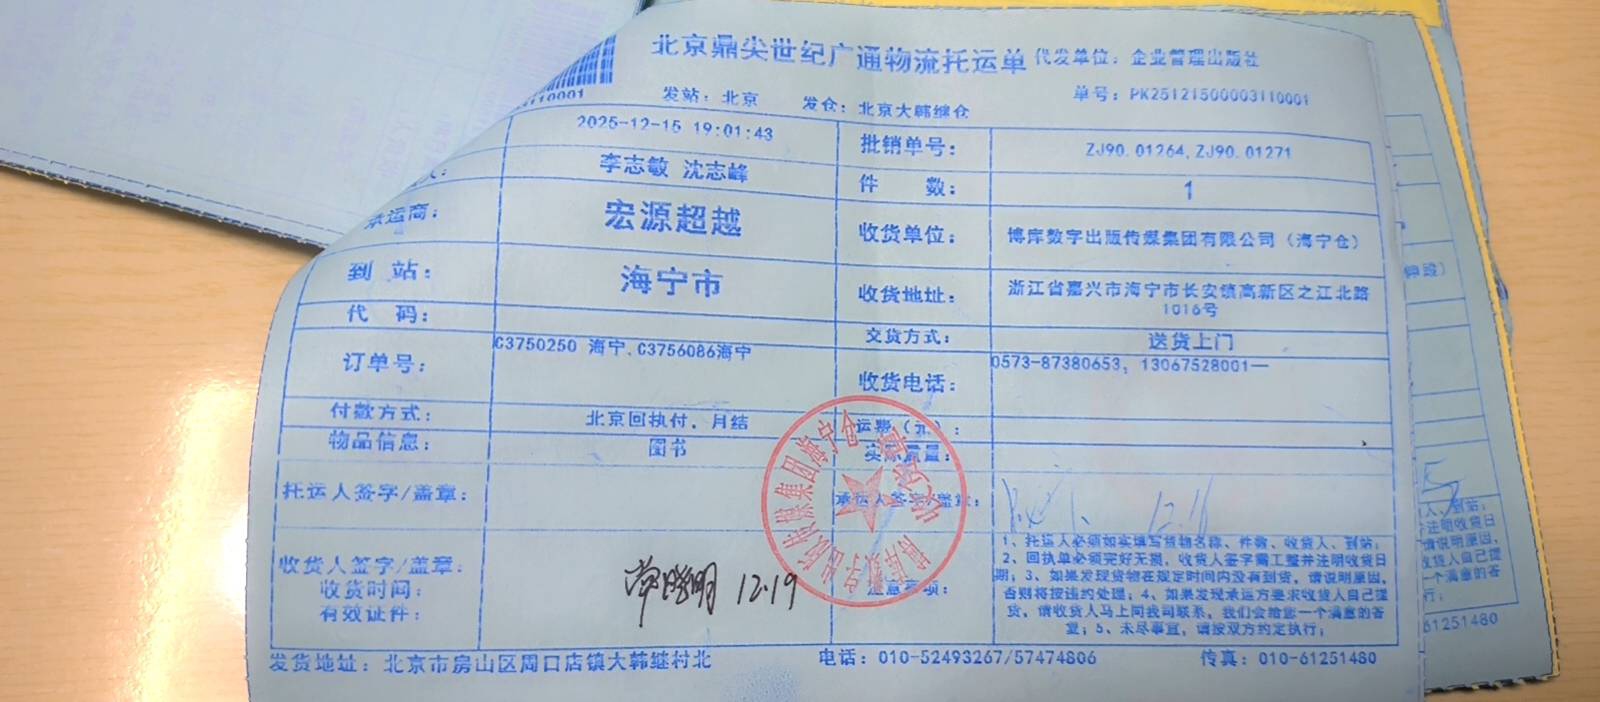 北京鼎尖世纪广通物流托运单 代发单位：企业管理出版社
发站：北京 发仓：北京大韩继仓 单号：PK25121500003110001
110001
2025-12-15 19:01:43 批销单号： ZJ90.01264,ZJ90.01271
李志敏 沈志峰 件 数： 1
承运商： 宏源超越 收货单位： 博库数字出版传媒集团有限公司（海宁仓）
到 站： 海宁市 收货地址： 浙江省嘉兴市海宁市长安镇高新区之江北路
1016号
代 码： 交货方式： 送货上门
订单号： C3750250 海宁、C3756086海宁 收货电话： 0573-87380653, 13067528001—
付款方式： 北京回执付，月结 运费（元）：
物品信息： 图书 实际重量：
托运人签字/盖章： 承运人签字/盖章： 12.16
收货人签字/盖章：
收货时间：
有效证件：
12.19
博库数字出版传媒集团海宁仓
注意事项：
1、托运人必须如实填写货物名称、件数、收货人、到站；
2、回执单必须完好无损，收货人签字需工整并注明收货日
期；3、如果发现货物在规定时间内没有到货，请说明原因，
否则将按违约处理；4、如果发现承运方要求收货人自己提
货，请收货人马上同我司联系，我们会给您一个满意的答
复；5、未尽事宜，请按双方约定执行；
发货地址：北京市房山区周口店镇大韩继村北 电话：010-52493267/57474806 传真：010-61251480
人、到站；
注明收货日
请说明原因，
收货人自己提
一个满意的答
行；
61251480